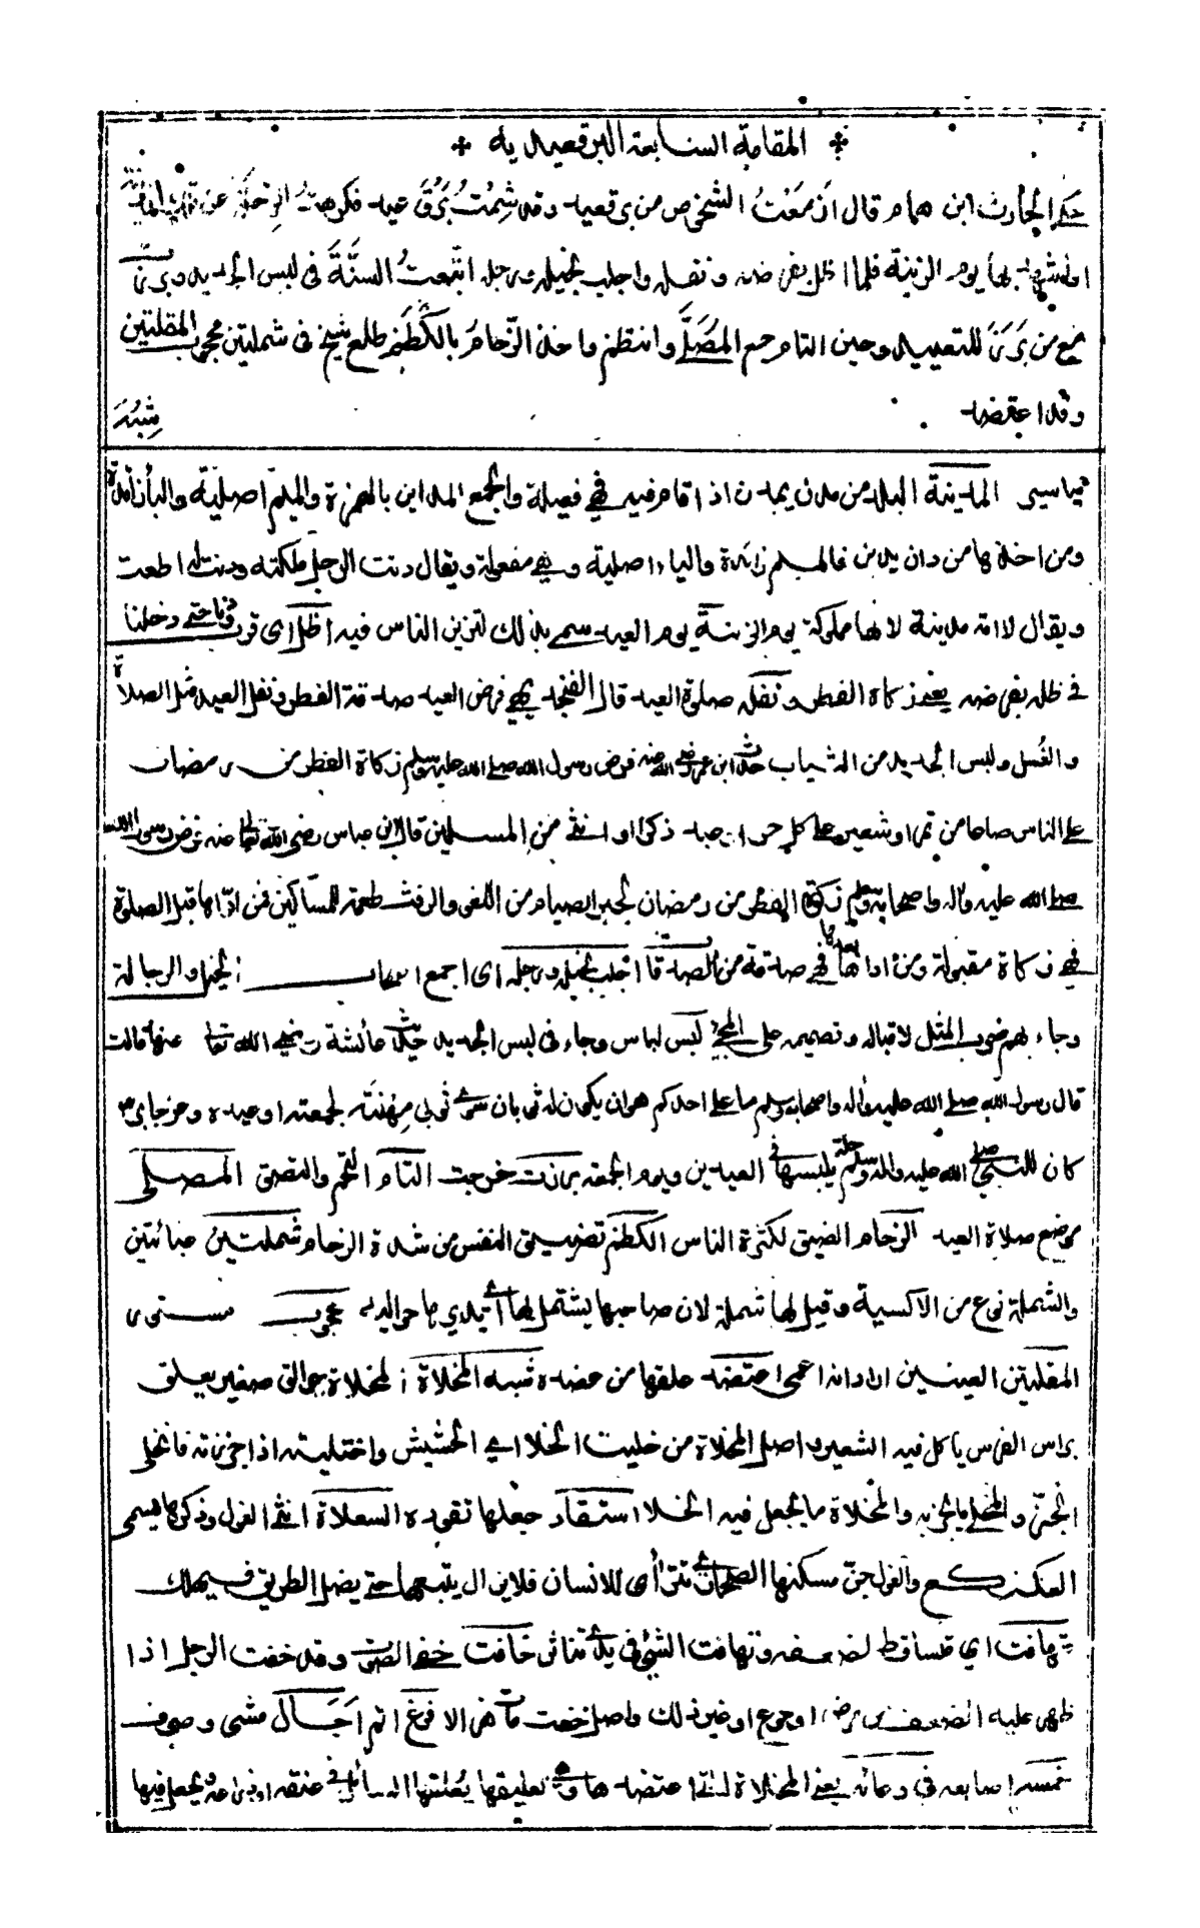 المقامة السابعة البرقعيدية
حكى الحارث ابن همام قال ازمعت الشخوص من برقعيد وقد شمت برق عيد فكرهت الرحلة عن تلك المدينة
او اشهد بها يوم الزينة فلما اظل بفرضه ونفله واجلب بخيله ورجله اتبعت السنة فى لبس الجديد وبرزت
مع من برز للتعييد وحين التام جمع المصلى وانتظم واخذ الزحام بالكظم طلع شيخ فى شملتين محجوب المقلتين
وقد اعتضد شبه
المدينة البلد من مدن يمدن اذا اقام فيه فهي فعيلة والجمع المداين بالهمزة والميم اصلية والياء زائدة
ومن اخذها من دان يدين فالميم زائدة والياء اصلية وهي مفعلة ويقال دنت الرجل ملكته ودنت له اطعت
ويقال لامة مدينة لانها مملوكة يوم الزينة يوم العيد سمي بذلك لتزين الناس فيه اظل اى قرب حتى دخلنا
فى ظله بفرضه يعنى زكاة الفطر ونفله صلوة العيد قال الفنجديهي فرض العيد صدقة الفطر ونفل العيد مثل الصلاة
والغسل ولبس الجديد من الثياب حديث ابن عمر رضي الله عنه فرض رسول الله صلى الله عليه وسلم زكاة الفطر من رمضان
على الناس صاعا من تمر او شعير على كل حر او عبد ذكر او انثى من المسلمين قال ابن عباس رضى الله تعالى عنه فرض رسول الله
صلى الله عليه واله واصحابه وسلم زكوة الفطر من رمضان لجبر الصيام من اللغو والرفث طعمة للمساكين فمن اداها قبل الصلوة
فهي زكاة مقبولة ومن اداها بعدها فهي صدقة من الصدقات اجلب بخيله ورجله اى اجمع الخيل والرجالة
وجاء بهم ضرب المثل لاقباله وتصميمه على المجيء لبس لباس وجاء فى لبس الجديد حديث عائشة رضي الله تعالى عنها قالت
قال رسول الله صلى الله عليه واله واصحابه وسلم ما على احدكم هو ان يكون له ثوبان سوى ثوبي مهنته لجمعته او عيده وعن جابر
كان للنبي صلى الله عليه واله وسلم حلة يلبسها فى العيدين ويوم الجمعة برزت خرجت التام التحم والتصق المصلى
موضع صلاة العيد الزحام الضيق لكثرة الناس الكظم تضييق النفس من شدة الزحام شملتين عبائتين
والشملة نوع من الاكسية وقيل لها شملة لان صاحبها يشتمل بها محجوب مستور
المقلتين العينين اراد انه اعمى اعتضد علقها من عضده شبه المخلاة المخلاة جوالق صغير يعلق
براس الفرس ياكل فيه الشعير واصل المخلاة من خليت الخلا اي الحشيش واختليته اذا جززته فانخلى
الجز والمخلى ما يجز به والمخلاة ما يجعل فيه الخلا استقاد جعلها تقوده السعلاة انثى الغول وذكرها يسمى
العكنكع والغول جن مسكنها الصحارى تترأى للانسان فلا يزال يتبعها حتى يضل الطريق فيهلك
تهافت اي تساقط لضعفه وتهافت الشئ فى يدى تناثر خافت خفى الصوت وقد خفت الرجل اذا
ظهر عليه الضعف من مرض او جوع او غير ذلك واصل خفت اجال مشى وصرف
خمسه اصابعه فى وعائه يعنى المخلاة التى اعتضدها تعليقها يعلقها السائل فى عنقه او ذراعه ويجعل فيها